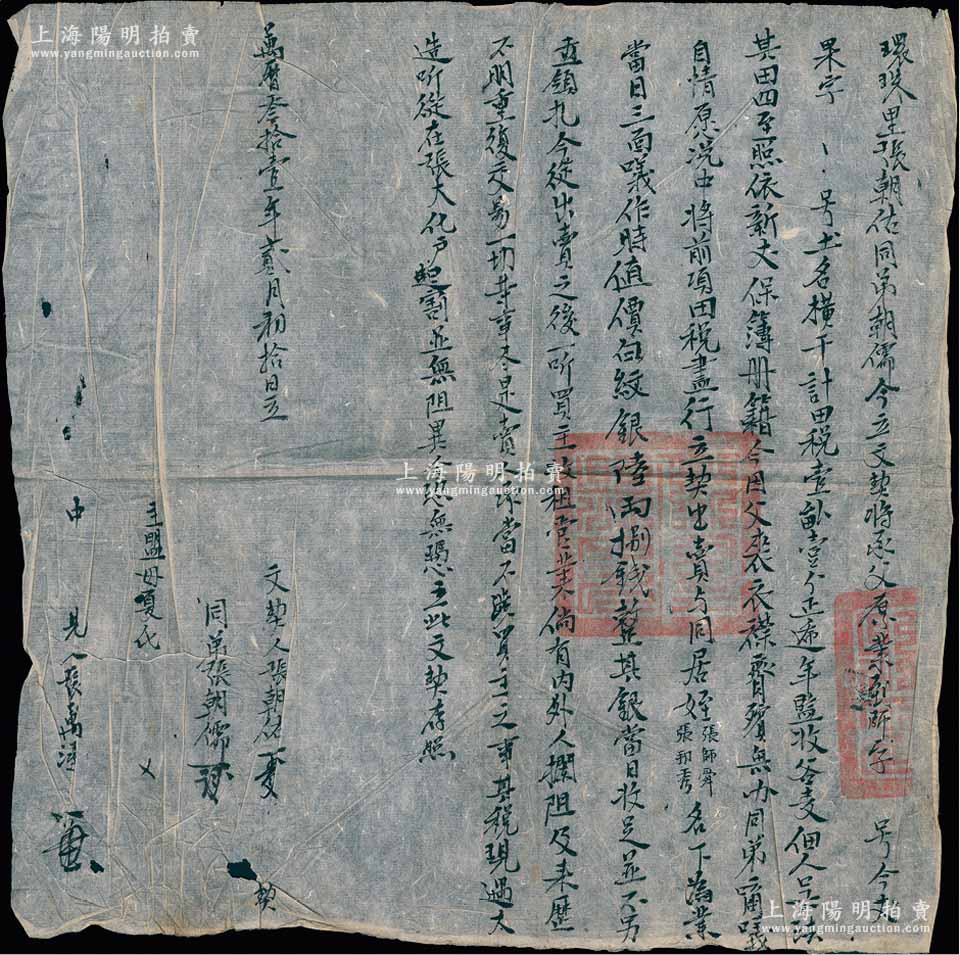 環珠里張朝佑同弟朝儒今立文契將承父原業 號今丈
果字 號土名橫干計田稅壹畝壹分正遞年監收各支佃人
其田四至照依新丈保簿冊籍今因父喪衣襟賫殯無办同弟商議
自情原浼中將前項田稅盡行立契出賣与同居姪張師舜張邦秀名下為業
當日三面議作時值價白紋銀陸兩捌錢整其銀當日收足並不另
立領扎今從出賣之後一听買主收租管業倘有內外人攔阻及來歷
不明重復交易一切等事尽是賣人承當不涉買主之事其稅現遇大
造听從在張大化户起割並無阻異今恐無憑立此文契存照
萬曆叁拾壹年貳月初拾日立
文契人張朝佑
契
同弟張朝儒
主盟母夏氏
中見人張禹
上海陽明拍賣
www.yangmingauction.com
上海陽明拍賣
www.yangmingauction.com
上海陽明拍賣
www.yangmingauction.com